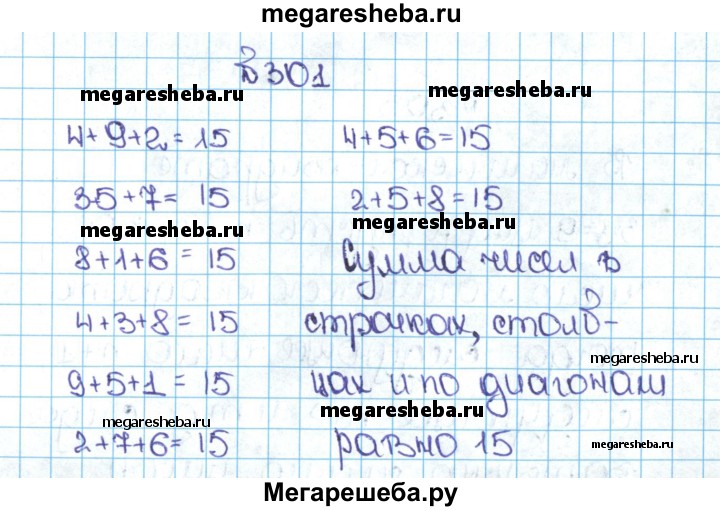 megaresheba.ru
№301
megaresheba.ru
megaresheba.ru
4+9+2=15
4+5+6=15
35+7=15
2+5+8=15
megaresheba.ru
megaresheba.ru
8+1+6=15
Сумма чисел в
4+3+8=15
строчках, столб-
megaresheba.ru
9+5+1=15
цах и по диагоналям
megaresheba.ru
megaresheba.ru
2+7+6=15
равно 15
megaresheba.ru
Мегарешеба.ру